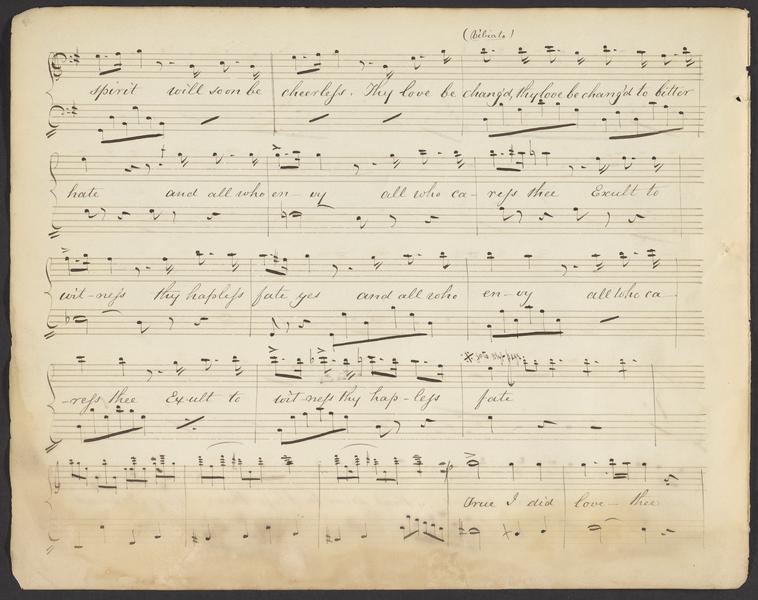 spirit will soon be cheerless. Thy love be chang'd, thy love be chang'd to bitter
hate and all who en-vy all who ca-ress thee Exult to
wit-ness thy hapless fate yes and all who en-vy all who ca-
-ress thee Exult to wit-ness thy hap-less fate
True I did love-thee